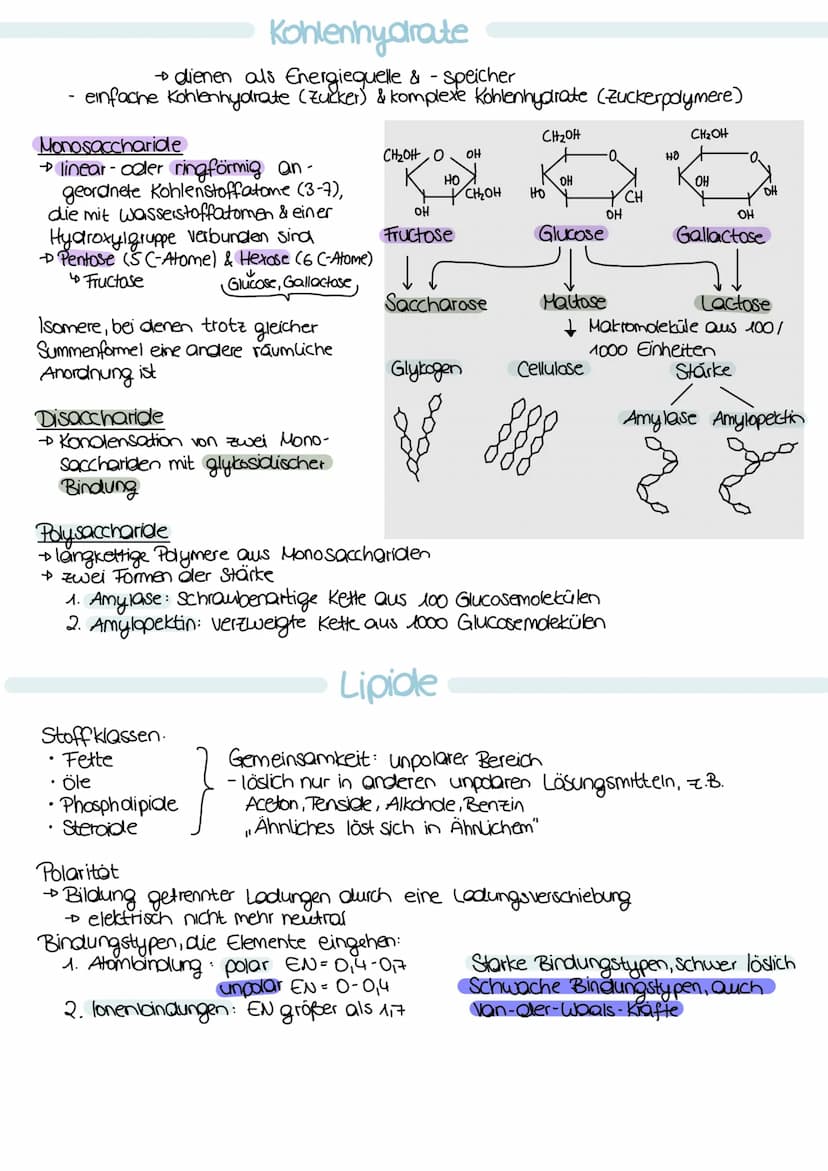 Kohlenhydrate
→ dienen als Energiequelle & - speicher
- einfache Kohlenhydrate (Zucker) & komplexe Kohlenhydrate (-Zuckerpolymere)
Monosaccharide
→ linear- oder ringförmig an-
geordnete Kohlenstoffatome (3-7),
die mit Wasserstoffatomen & einer
Hydroxylgruppe verbunden sind
→ Pentose (5 C-Atome) & Hexose (6 C-Atome)
↳ Fructose
Glucose, Gallactose
Isomere, bei denen trotz gleicher
Summenformel eine andere räumliche
Anordnung ist
Disaccharide
→ Kondensation von zwei Mono-
sacchariden mit glykosidischer
Bindung
CH₂OH O OH
HO
CH₂OH
OH
Fructose
CH₂OH
O
OH
HO
CH
OH
Glucose
CH₂OH
HO
O
OH
OH
OH
Gallactose
Saccharose Maltose Lactose
↓ Makromoleküle aus 100/
1000 Einheiten
Glykogen Cellulose Stärke
Amylase Amylopektin
Polysaccharide
→ langkettige Polymere aus Monosacchariden
→ zwei Formen der Stärke
1. Amylase: schraubenartige Kette aus 100 Glucosemolekülen
2. Amylopektin: verzweigte Kette aus 1000 Glucosemolekülen
Lipide
Stoffklassen:
• Fette
• Öle
• Phospholipide
• Steroide
Gemeinsamkeit: unpolarer Bereich
- löslich nur in anderen unpolaren Lösungsmitteln, z.B.
Aceton, Tenside, Alkohole, Benzin
„Ähnliches löst sich in Ähnlichem"
Polarität
→ Bildung getrennter Ladungen durch eine Ladungsverschiebung
→ elektrisch nicht mehr neutral
Bindungstypen, die Elemente eingehen:
1. Atombindung: polar EN = 0,4-0,7
unpolar EN = 0-0,4
2. Ionenbindungen: EN größer als 1,7
Starke Bindungstypen, schwer löslich
Schwache Bindungstypen, auch
Van-der-Waals-Kräfte